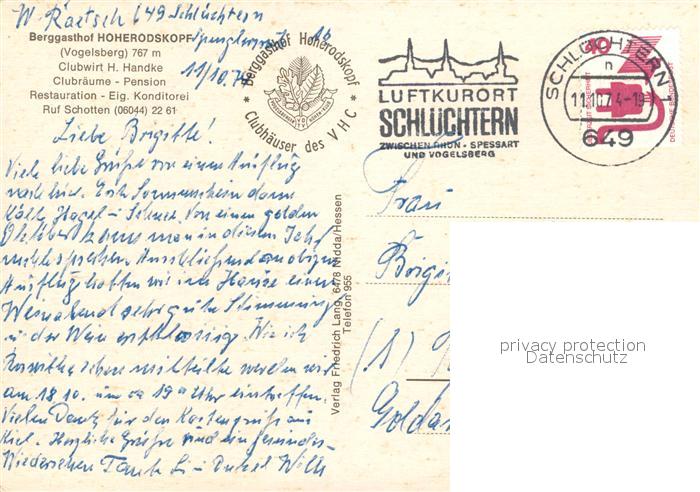 W. Raetsch 649 Schlüchtern
Berggasthof HOHERODSKOPF
(Vogelsberg) 767 m
Clubwirt H. Handke
Clubräume - Pension
Restauration - Eig. Konditorei
Ruf Schotten (06044) 22 61
11/10.74
Berggasthof Hoherodskopf
Clubhäuser des VHC
LUFTKURORT
SCHLÜCHTERN
ZWISCHEN RHÖN · SPESSART
UND VOGELSBERG
SCHLÜCHTERN 1
n
11.10.74-19
649
40
DEUTSCHE BUNDESPOST
Liebe Brigitte!
Viele liebe Grüße von einem Ausflug
nach hier. Erst Sonnenschein dann
Kälte Hagel u. Schnee. Von einem golden
Oktober kann man in diesem Jahr
nicht sprechen. Anschließend an obigen
Ausflug hatten wir im Hause einen
Weinabend sehr gute Stimmung
u. der Wein erstklassig. Wie ich
Roswitha schon mitteilte werden wir
am 18.10. um ca 19 Uhr eintreffen.
Vielen Dank für den Kartengruß aus
Kiel. Herzliche Grüße und ein gesundes
Wiedersehen Tante Li u. Onkel Willi
Verlag Friedrich Lang, 6478 Nidda/Hessen
Telefon 955
Frau
(1)
privacy protection
Datenschutz